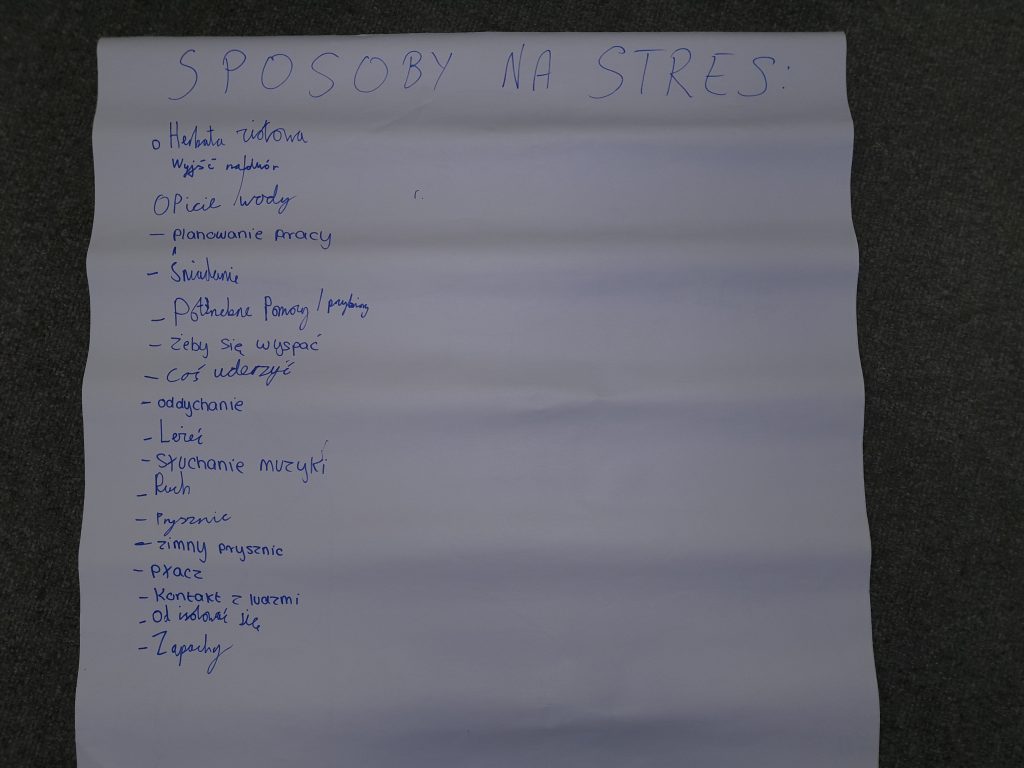 SPOSOBY NA STRES:
o Herbata ziołowa
Wyjść na dwór
O Picie wody
- planowanie pracy
- Śniadanie
- Potrzebne Pomocy /
- Żeby się wyspać
- Coś uderzyć
- oddychanie
- Leżeć
- Słuchanie muzyki
- Ruch
- Prysznic
- zimny prysznic
- płacz
- Kontakt z ludzmi
- Od izolować się
- Zapachy